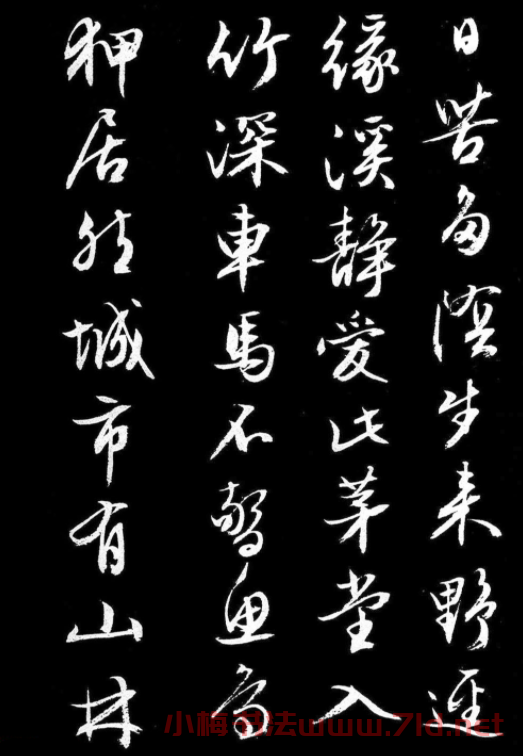 日苦多陰步来野逕
緣溪靜愛此茅堂入
竹深車馬不驚魚鳥
狎居然城市有山林
小梅书法www.7ld.net